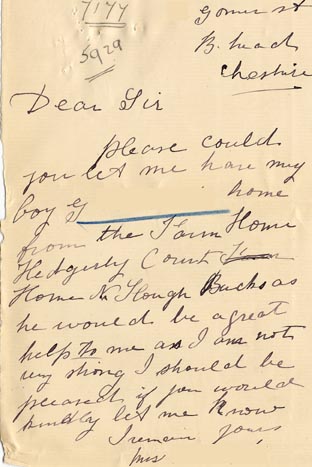 7177
5929
Gomer st
B. head
Cheshire
Dear Sir
please could
you let me have my
boy G home
from the Farm Home
Hedgerly Court
Home Nr Slough Bucks as
he would be a great
help to me as I am not
very strong I should be
pleased if you would
kindly let me know
I remain yours,
Mrs